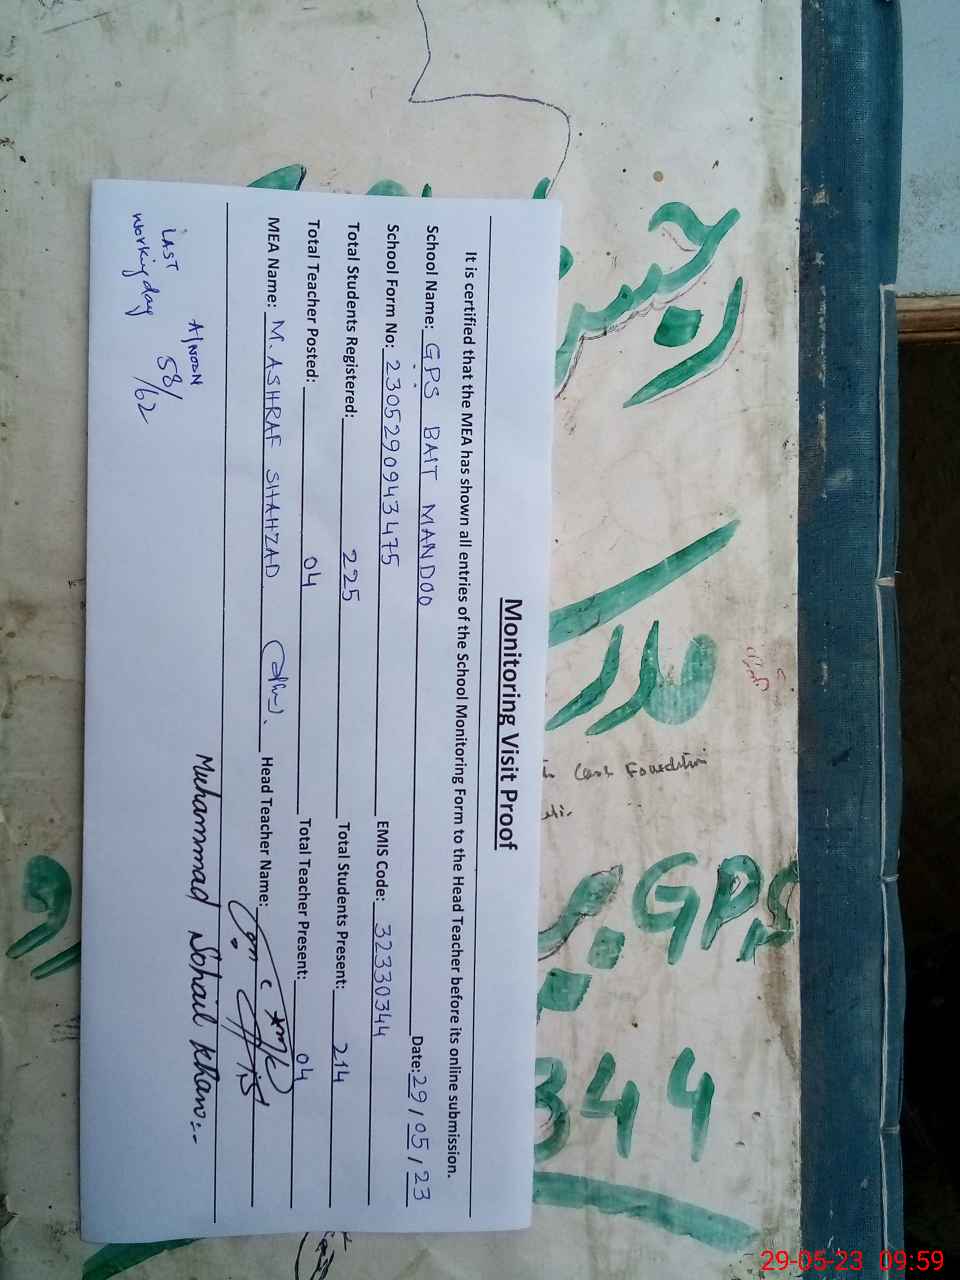 Monitoring Visit Proof
It is certified that the MEA has shown all entries of the School Monitoring Form to the Head Teacher before its online submission.
School Name: GPS BAIT MANDOO Date: 29/05/23
School Form No: 230529094 3475 EMIS Code: 32330344
Total Students Registered: 225 Total Students Present: 214
Total Teacher Posted: 04 Total Teacher Present: 04
MEA Name: M. ASHRAF SHAHZAD Head Teacher Name:
Muhammad Sohail Khan:-
LAST
working day
A/NOON
58/62
رجسٹر
Cash Foundation
GPS
344
29-05-23 09:59